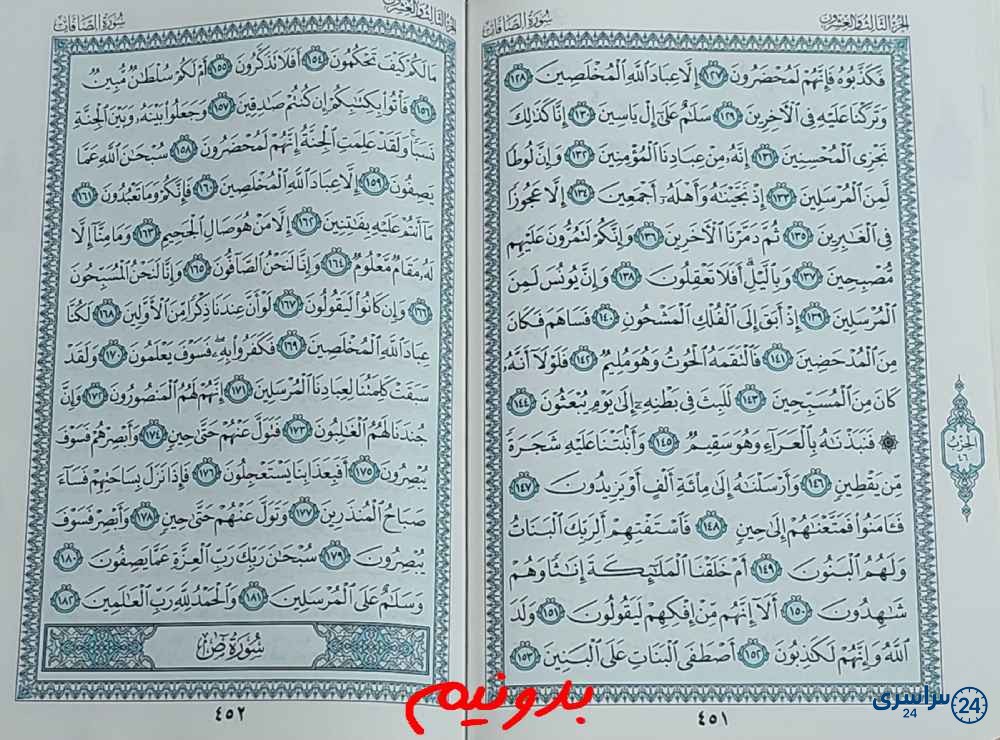 الجزء الثالث والعشرون
سورة الصافات
فَكَذَّبُوهُ فَإِنَّهُمْ لَمُحْضَرُونَ ١٢٧ إِلَّا عِبَادَ اللَّهِ الْمُخْلَصِينَ ١٢٨
وَتَرَكْنَا عَلَيْهِ فِي الْآخِرِينَ ١٢٩ سَلَامٌ عَلَىٰ إِلْ يَاسِينَ ١٣٠ إِنَّا كَذَٰلِكَ
نَجْزِي الْمُحْسِنِينَ ١٣١ إِنَّهُ مِنْ عِبَادِنَا الْمُؤْمِنِينَ ١٣٢ وَإِنَّ لُوطًا
لَّمِنَ الْمُرْسَلِينَ ١٣٣ إِذْ نَجَّيْنَاهُ وَأَهْلَهُ أَجْمَعِينَ ١٣٤ إِلَّا عَجُوزًا
فِي الْغَابِرِينَ ١٣٥ ثُمَّ دَمَّرْنَا الْآخَرِينَ ١٣٦ وَإِنَّكُمْ لَتَمُرُّونَ عَلَيْهِم
مُّصْبِحِينَ ١٣٧ وَبِاللَّيْلِ أَفَلَا تَعْقِلُونَ ١٣٨ وَإِنَّ يُونُسَ لَمِنَ
الْمُرْسَلِينَ ١٣٩ إِذْ أَبَقَ إِلَى الْفُلْكِ الْمَشْحُونِ ١٤٠ فَسَاهَمَ فَكَانَ
مِنَ الْمُدْحَضِينَ ١٤١ فَالْتَقَمَهُ الْحُوتُ وَهُوَ مُلِيمٌ ١٤٢ فَلَوْلَا أَنَّهُ
كَانَ مِنَ الْمُسَبِّحِينَ ١٤٣ لَلَبِثَ فِي بَطْنِهِ إِلَىٰ يَوْمِ يُبْعَثُونَ ١٤٤
۞ فَنَبَذْنَاهُ بِالْعَرَاءِ وَهُوَ سَقِيمٌ ١٤٥ وَأَنبَتْنَا عَلَيْهِ شَجَرَةً
مِّن يَقْطِينٍ ١٤٦ وَأَرْسَلْنَاهُ إِلَىٰ مِائَةِ أَلْفٍ أَوْ يَزِيدُونَ ١٤٧
فَآمَنُوا فَمَتَّعْنَاهُمْ إِلَىٰ حِينٍ ١٤٨ فَاسْتَفْتِهِمْ أَلِرَبِّكَ الْبَنَاتُ
وَلَهُمُ الْبَنُونَ ١٤٩ أَمْ خَلَقْنَا الْمَلَائِكَةَ إِنَاثًا وَهُمْ
شَاهِدُونَ ١٥٠ أَلَا إِنَّهُم مِّنْ إِفْكِهِمْ لَيَقُولُونَ ١٥١ وَلَدَ
اللَّهُ وَإِنَّهُمْ لَكَاذِبُونَ ١٥٢ أَصْطَفَى الْبَنَاتِ عَلَى الْبَنِينَ ١٥٣
الحزب
٤٦
٤٥١
الجزء الثالث والعشرون
سورة الصافات
مَا لَكُمْ كَيْفَ تَحْكُمُونَ ١٥٤ أَفَلَا تَذَكَّرُونَ ١٥٥ أَمْ لَكُمْ سُلْطَانٌ مُّبِينٌ
١٥٦ فَأْتُوا بِكِتَابِكُمْ إِن كُنتُمْ صَادِقِينَ ١٥٧ وَجَعَلُوا بَيْنَهُ وَبَيْنَ الْجِنَّةِ
نَسَبًا وَلَقَدْ عَلِمَتِ الْجِنَّةُ إِنَّهُمْ لَمُحْضَرُونَ ١٥٨ سُبْحَانَ اللَّهِ عَمَّا
يَصِفُونَ ١٥٩ إِلَّا عِبَادَ اللَّهِ الْمُخْلَصِينَ ١٦٠ فَإِنَّكُمْ وَمَا تَعْبُدُونَ ١٦١
مَا أَنتُمْ عَلَيْهِ بِفَاتِنِينَ ١٦٢ إِلَّا مَنْ هُوَ صَالِ الْجَحِيمِ ١٦٣ وَمَا مِنَّا إِلَّا
لَهُ مَقَامٌ مَّعْلُومٌ ١٦٤ وَإِنَّا لَنَحْنُ الصَّافُّونَ ١٦٥ وَإِنَّا لَنَحْنُ الْمُسَبِّحُونَ
١٦٦ وَإِن كَانُوا لَيَقُولُونَ ١٦٧ لَوْ أَنَّ عِندَنَا ذِكْرًا مِّنَ الْأَوَّلِينَ ١٦٨ لَكُنَّا
عِبَادَ اللَّهِ الْمُخْلَصِينَ ١٦٩ فَكَفَرُوا بِهِ فَسَوْفَ يَعْلَمُونَ ١٧٠ وَلَقَدْ
سَبَقَتْ كَلِمَتُنَا لِعِبَادِنَا الْمُرْسَلِينَ ١٧١ إِنَّهُمْ لَهُمُ الْمَنصُورُونَ ١٧٢ وَإِنَّ
جُندَنَا لَهُمُ الْغَالِبُونَ ١٧٣ فَتَوَلَّ عَنْهُمْ حَتَّىٰ حِينٍ ١٧٤ وَأَبْصِرْهُمْ فَسَوْفَ
يُبْصِرُونَ ١٧٥ أَفَبِعَذَابِنَا يَسْتَعْجِلُونَ ١٧٦ فَإِذَا نَزَلَ بِسَاحَتِهِمْ فَسَاءَ
صَبَاحُ الْمُنذَرِينَ ١٧٧ وَتَوَلَّ عَنْهُمْ حَتَّىٰ حِينٍ ١٧٨ وَأَبْصِرْ فَسَوْفَ
يُبْصِرُونَ ١٧٩ سُبْحَانَ رَبِّكَ رَبِّ الْعِزَّةِ عَمَّا يَصِفُونَ ١٨٠
وَسَلَامٌ عَلَى الْمُرْسَلِينَ ١٨١ وَالْحَمْدُ لِلَّهِ رَبِّ الْعَالَمِينَ ١٨٢
سورة ص
٤٥٢
بدونیم
سراسری 24
24